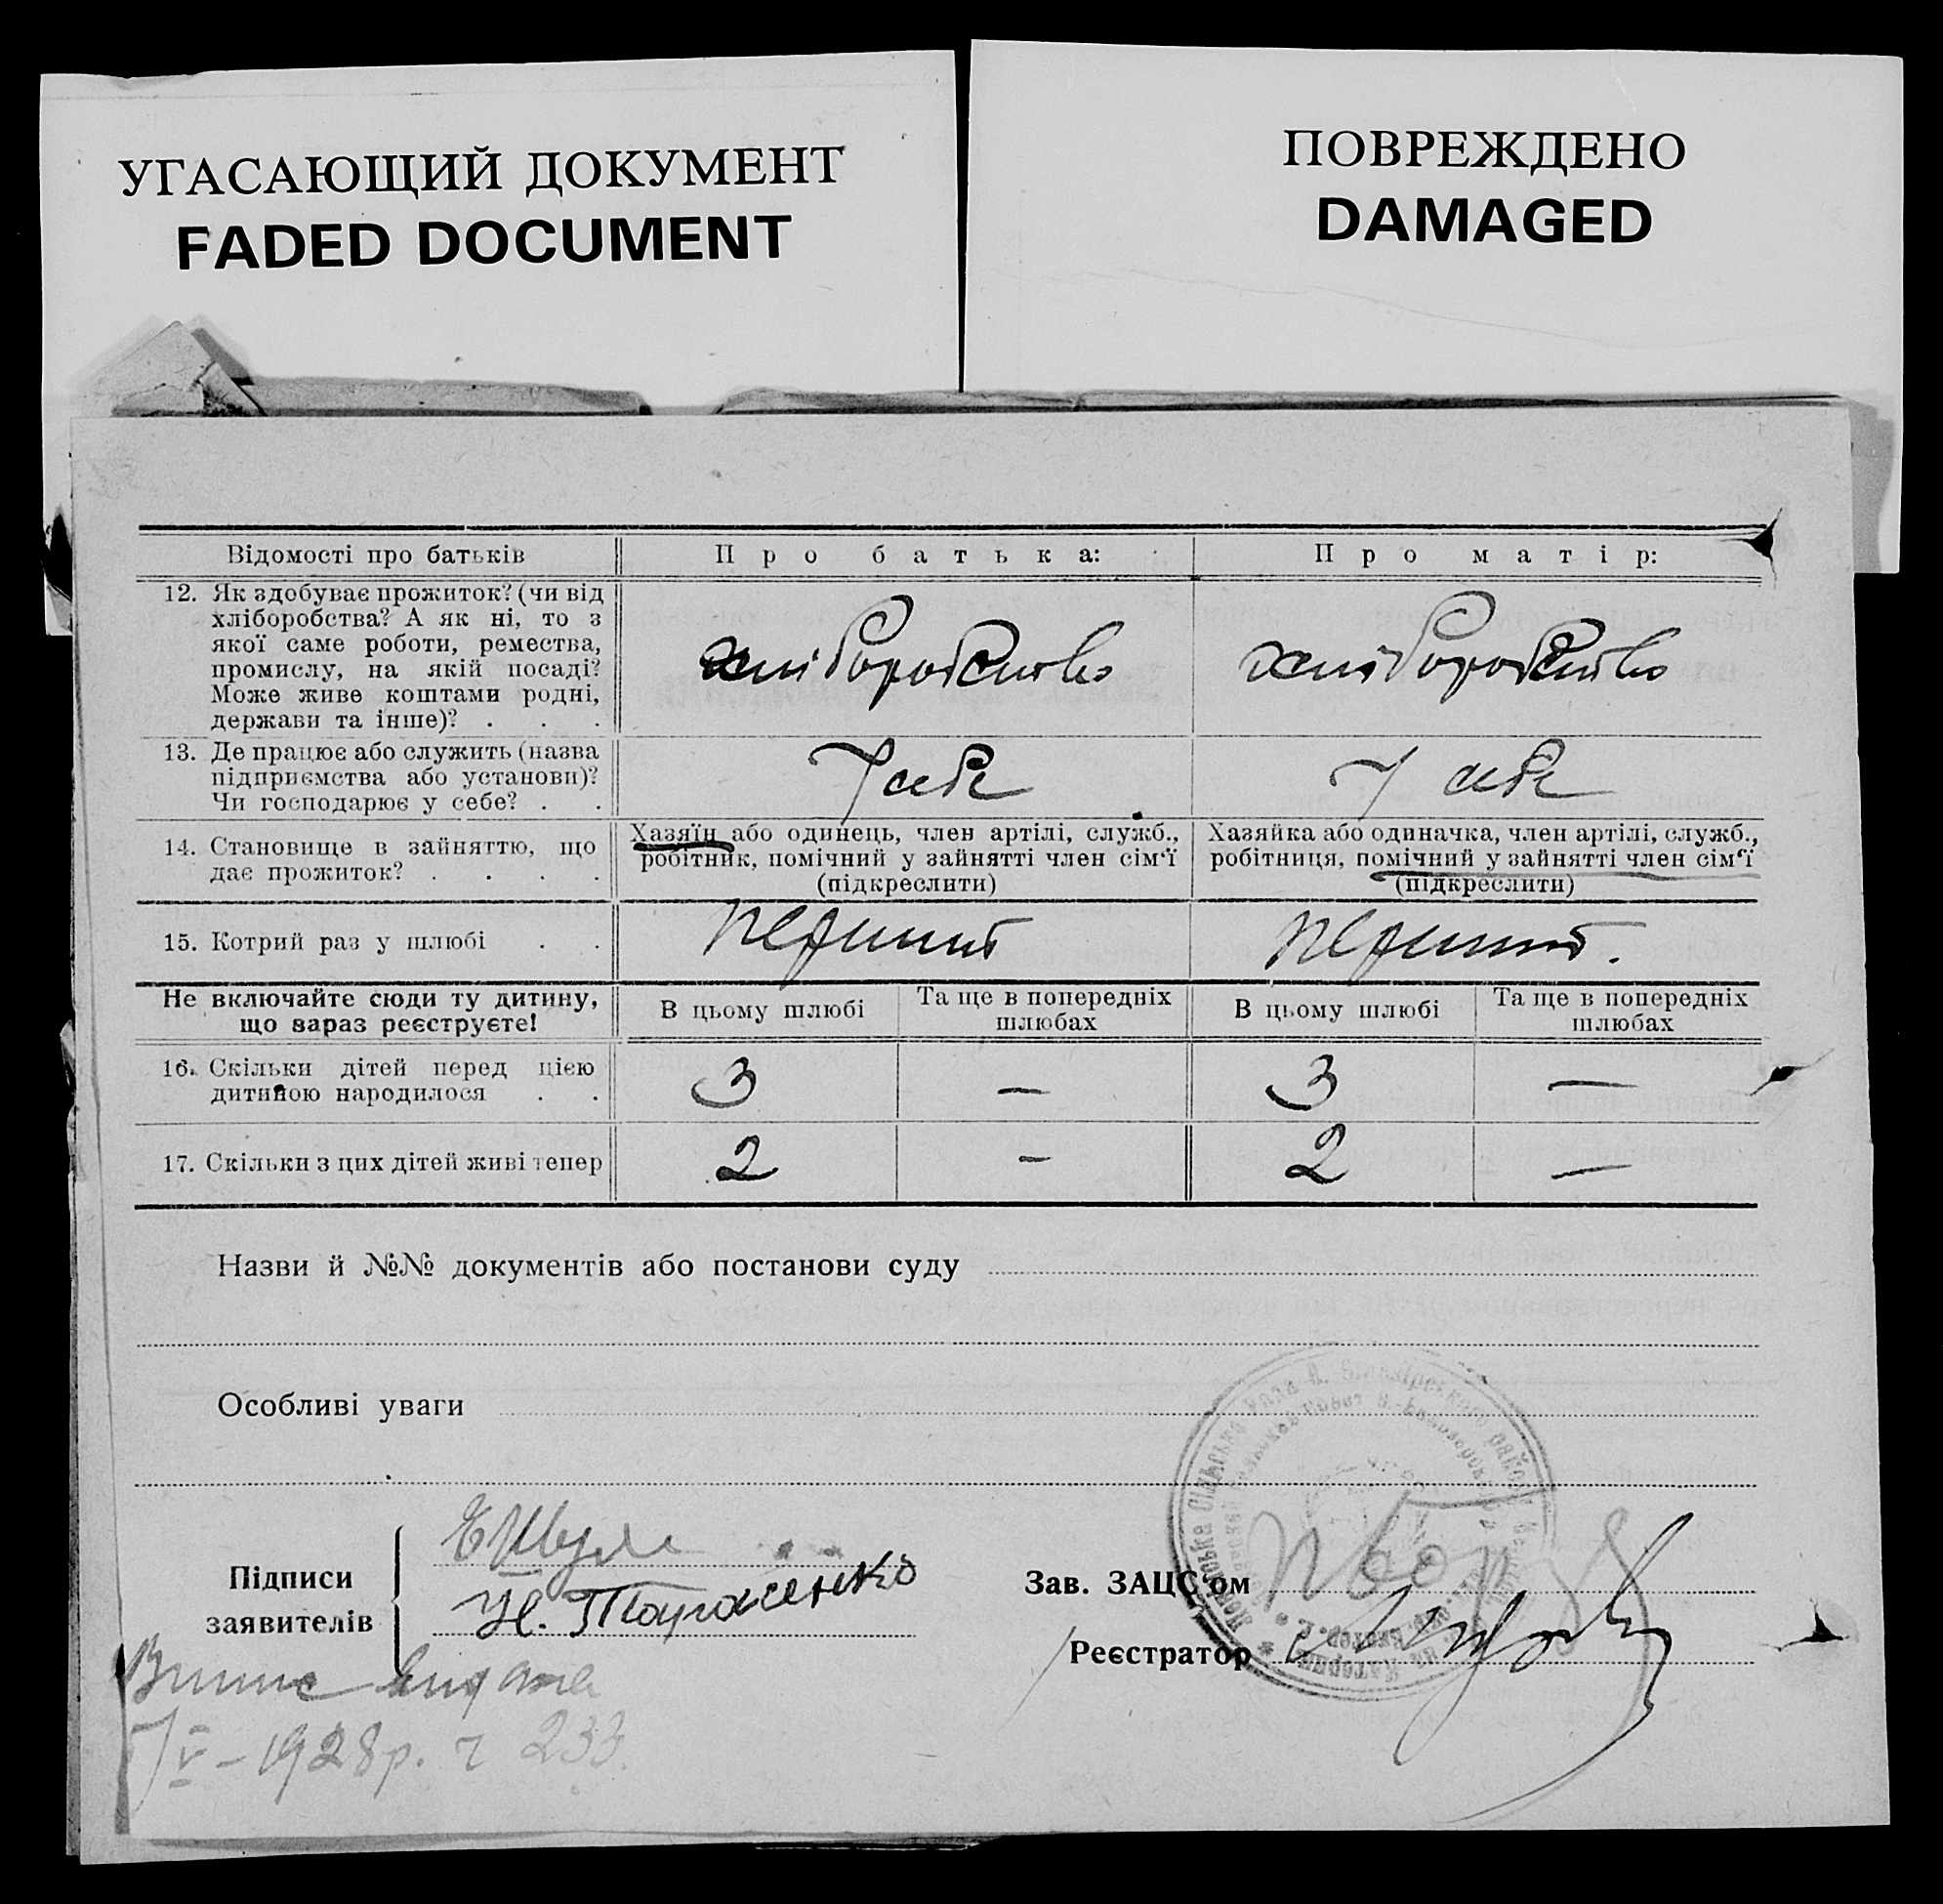 УГАСАЮЩИЙ ДОКУМЕНТ
FADED DOCUMENT
ПОВРЕЖДЕНО
DAMAGED
Відомості про батьків
Про батька:
Про матір:
12. Як здобуває прожиток? (чи від
хліборобства? А як ні, то з
якої саме роботи, ремества,
промислу, на якій посаді?
Може живе коштами родні,
держави та інше)? . . .
хліборобство
хліборобство
13. Де працює або служить (назва
підприємства або установи)?
Чи господарює у себе? . .
У себе
У себе
14. Становище в зайняттю, що
дає прожиток? . . . .
Хазяїн або одинець, член артілі, служб.,
робітник, помічний у зайнятті член сім'ї
(підкреслити)
Хазяйка або одиначка, член артілі, служб.,
робітниця, помічний у зайнятті член сім'ї
(підкреслити)
15. Котрий раз у шлюбі . .
перший
перший.
Не включайте сюди ту дитину,
що зараз реєструєте!
В цьому шлюбі
Та ще в попередніх
шлюбах
В цьому шлюбі
Та ще в попередніх
шлюбах
16. Скільки дітей перед цією
дитиною народилося . .
3
—
3
—
17. Скільки з цих дітей живі тепер
2
—
2
—
Назви й №№ документів або постанови суду
Особливі уваги
Підписи
заявителів
Н. Тараненко
Зав. ЗАЦС'ом
Реєстратор
Випис видана
V – 1928 р. ч 233.